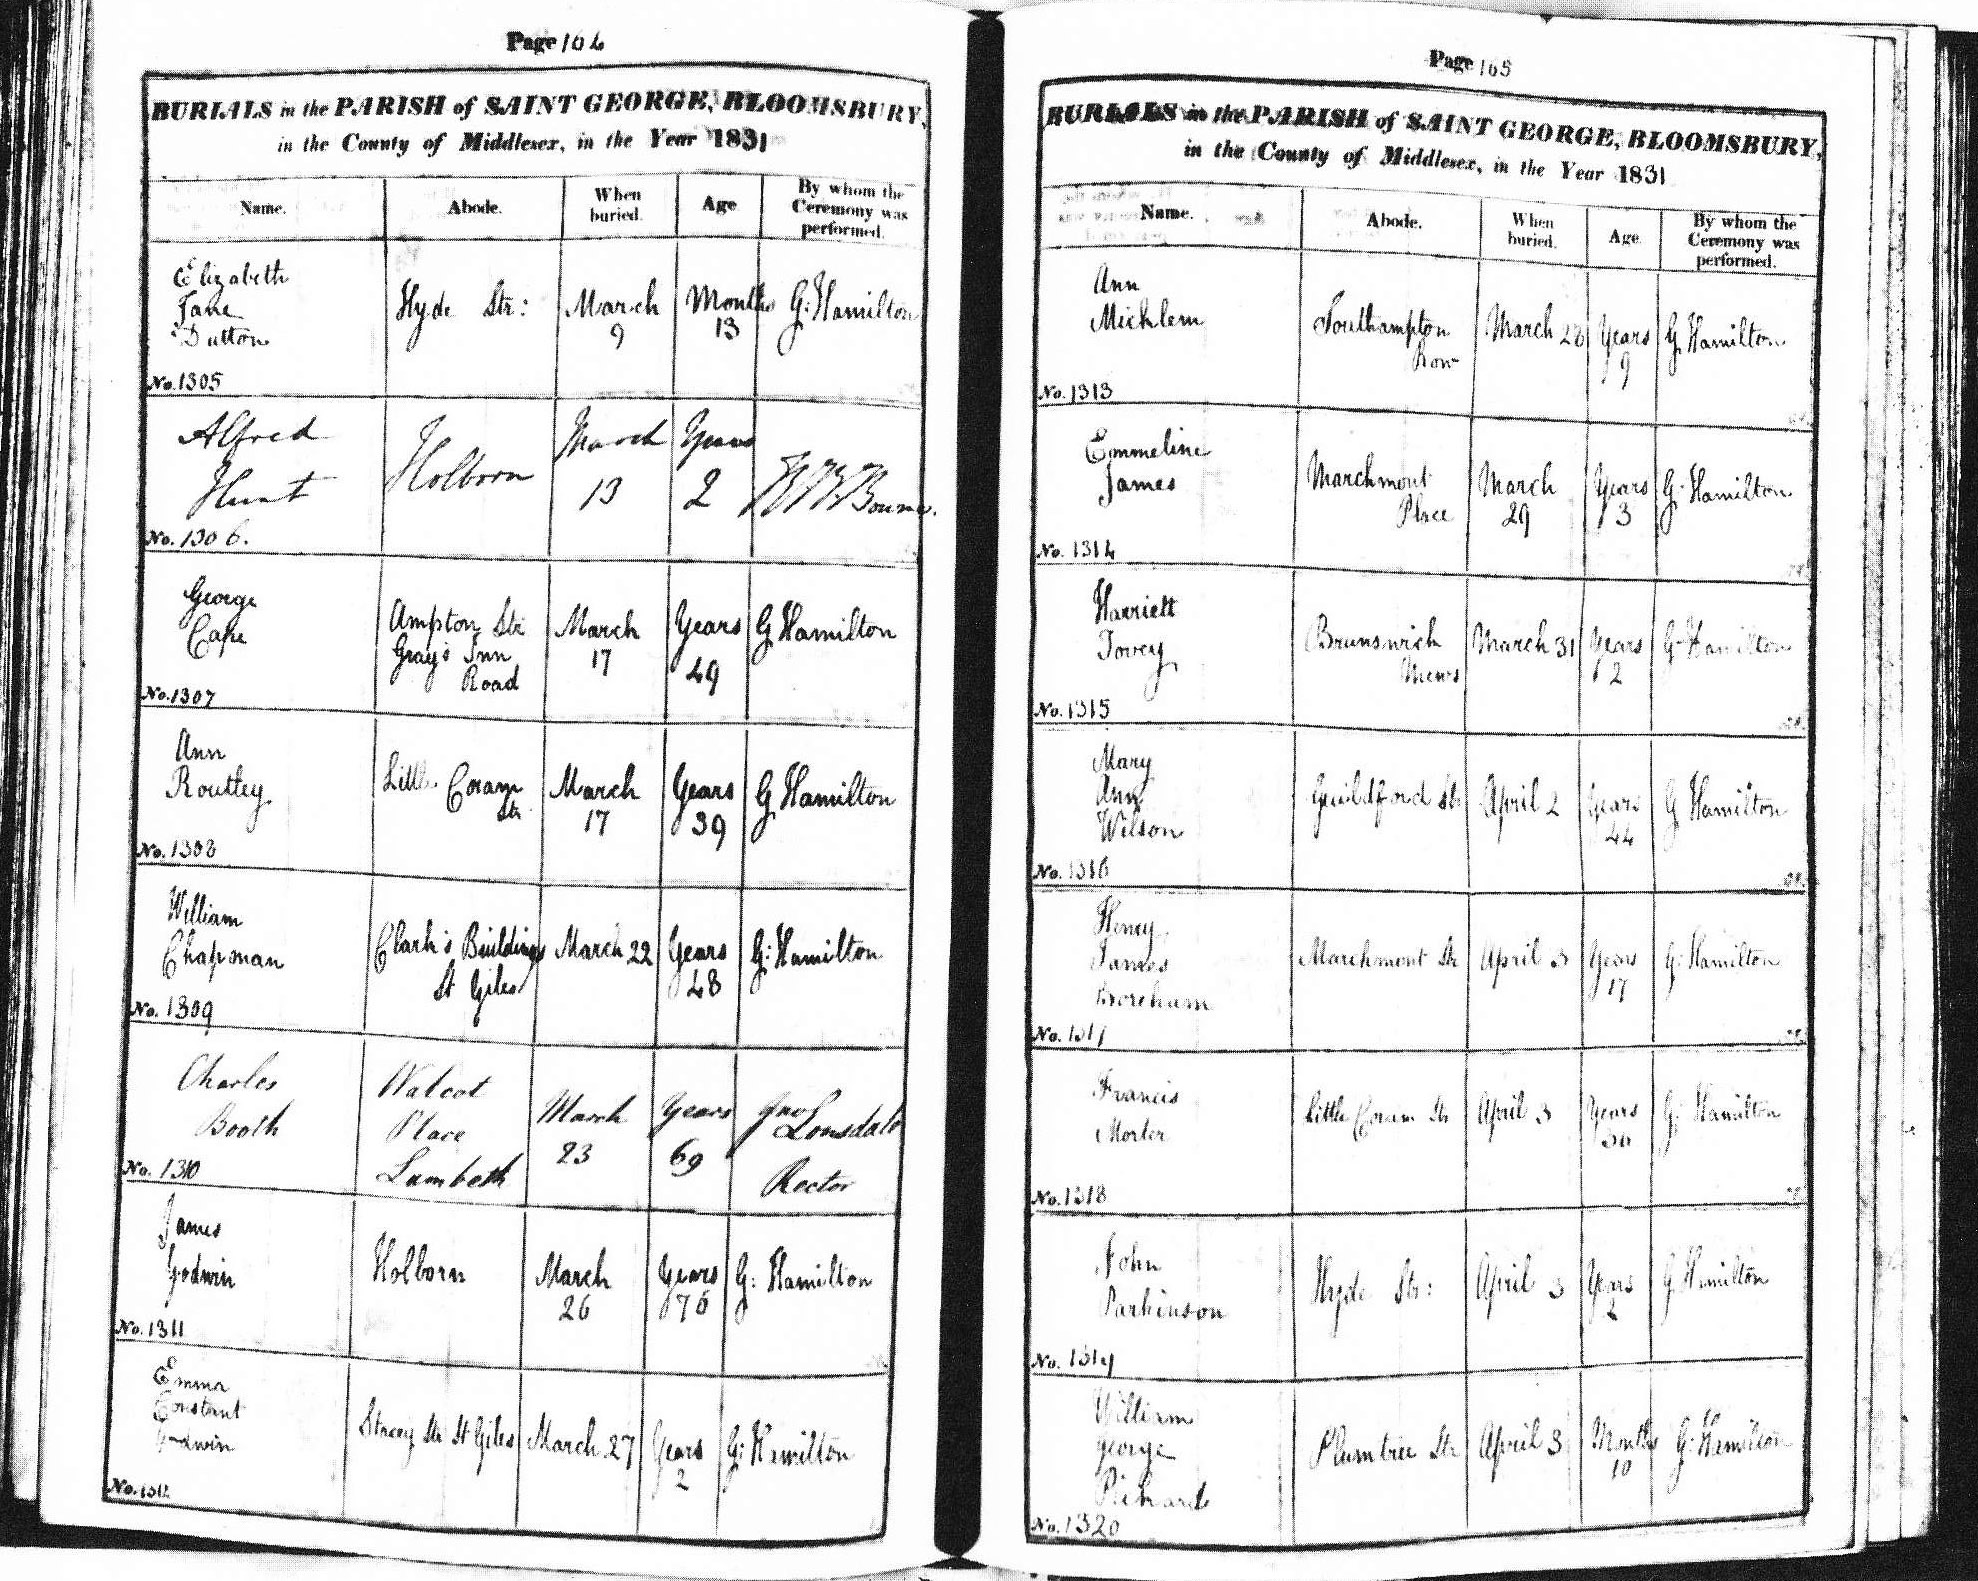 Page 164
BURIALS in the PARISH of SAINT GEORGE, BLOOMSBURY,
in the County of Middlesex, in the Year 1831
Name.
Abode.
When
buried.
Age
By whom the
Ceremony was
performed.
Elizabeth
Jane
Dutton
No. 1305
Hyde Str:
March
9
Months
13
G: Hamilton
Alfred
Hunt
No. 1306.
Holborn
March
13
Years
2
Bourne.
George
Cape
No. 1307
Ampton Str
Gray's Inn
Road
March
17
Years
49
G Hamilton
Ann
Routley
No. 1308
Little Coram
Str
March
17
Years
39
G Hamilton
William
Chapman
No. 1309
Clark's Buildings
St Giles
March 22
Years
48
G: Hamilton
Charles
Booth
No. 1310
Walcot
Place
Lambeth
March
23
Years
69
Jno Lonsdale
Rector
James
Godwin
No. 1311
Holborn
March
26
Years
76
G: Hamilton
Emma
Constant
Godwin
No. 1312
Stacey Str St Giles
March 27
Years
2
G: Hamilton
Page 165
BURIALS in the PARISH of SAINT GEORGE, BLOOMSBURY,
in the County of Middlesex, in the Year 1831
Name.
Abode.
When
buried.
Age
By whom the
Ceremony was
performed.
Ann
Micklem
No. 1313
Southampton
Row
March 28
Years
9
G Hamilton
Emmeline
James
No. 1314
Marchmont
Place
March
29
Years
3
G. Hamilton
Harriett
Tovey
No. 1315
Brunswick
Mews
March 31
Years
2
G. Hamilton
Mary
Ann
Wilson
No. 1316
Guildford Str
April 2
Years
44
G Hamilton
Henry
James
Boreham
No. 1317
Marchmont Str
April 3
Years
17
G: Hamilton
Francis
Morter
No. 1318
Little Coram Str
April 3
Years
36
G: Hamilton
John
Parkinson
No. 1319
Hyde Str:
April 3
Years
2
G Hamilton
William
George
Richards
No. 1320
Plumtree Str
April 3
Months
10
G: Hamilton